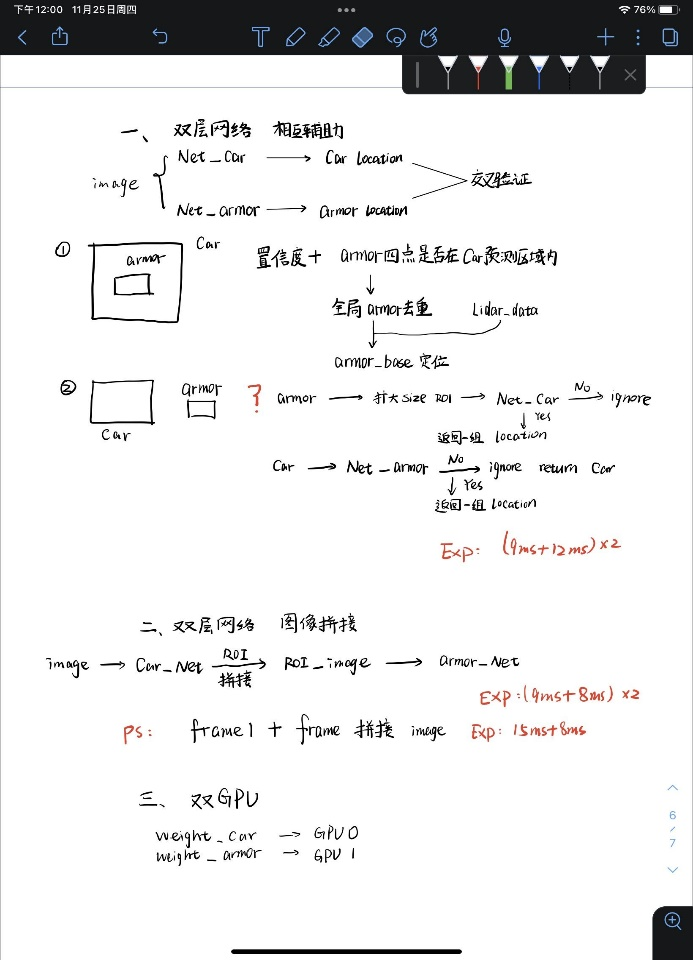 下午12:00 11月25日周四
76%
一、双层网络 相互辅助
image
Net_Car → Car Location
Net_armor → Armor Location
交叉验证
① Car
armor
置信度+ armor四点是否在Car预测区域内
↓
全局armor去重 Lidar_data
armor_base 定位
② armor
Car
? armor → 扩大Size ROI → Net_Car No → ignore
↓ Yes
返回一组 location
Car → Net_armor No → ignore return Car
↓ Yes
返回一组 location
Exp: (9ms+12ms)×2
二、双层网络 图像拼接
image → Car_Net ROI 拼接 → ROI_image → armor_Net
Exp:(9ms+8ms)×2
PS: frame1 + frame 拼接 image Exp: 15ms+8ms
三、双GPU
weight_car → GPU 0
weight_armor → GPU 1
6/7